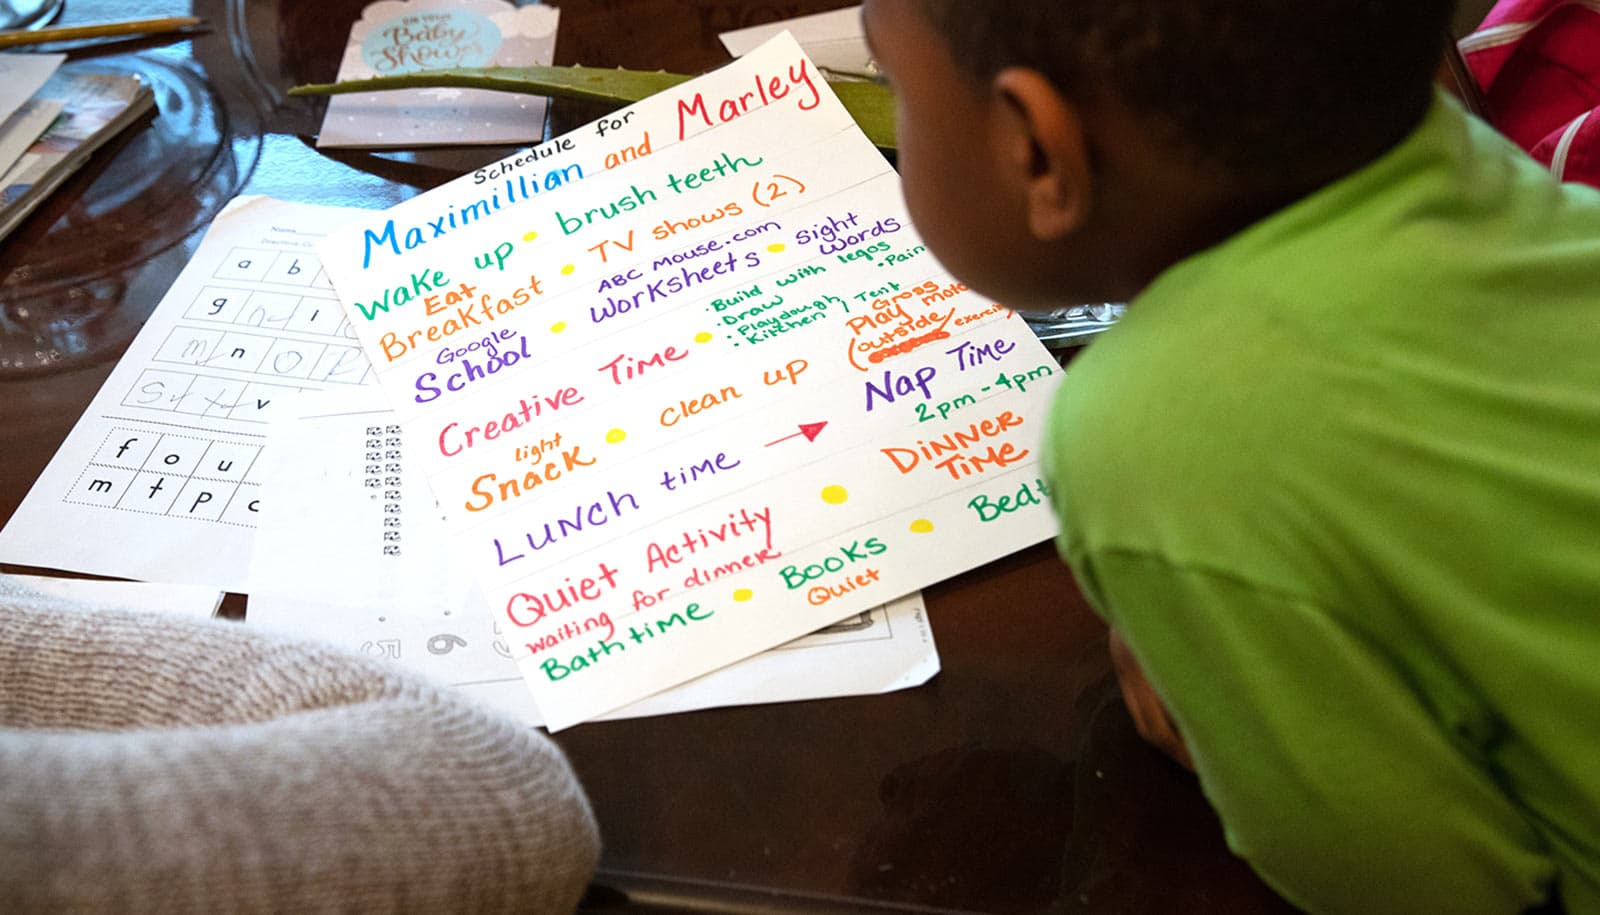 Baby
Shower
Schedule for
Maximillian and Marley
wake up • brush teeth
Eat
Breakfast • TV shows (2)
Google
School • ABC Mouse.com
Worksheets • sight
words
Creative Time • • Build with legos
• Draw
• Playdough, Tent
• Kitchen
• Pain
light
Snack • clean up
Play
Gross
Moto
(outside/exercis
LUNCH time → Nap Time
2pm - 4pm
Quiet Activity • DINNER
Time
waiting for dinner
Bath time • Books • Bedt
Quiet
Name
a b
g h i
m n o p
s t v
f o u
m t p c
6